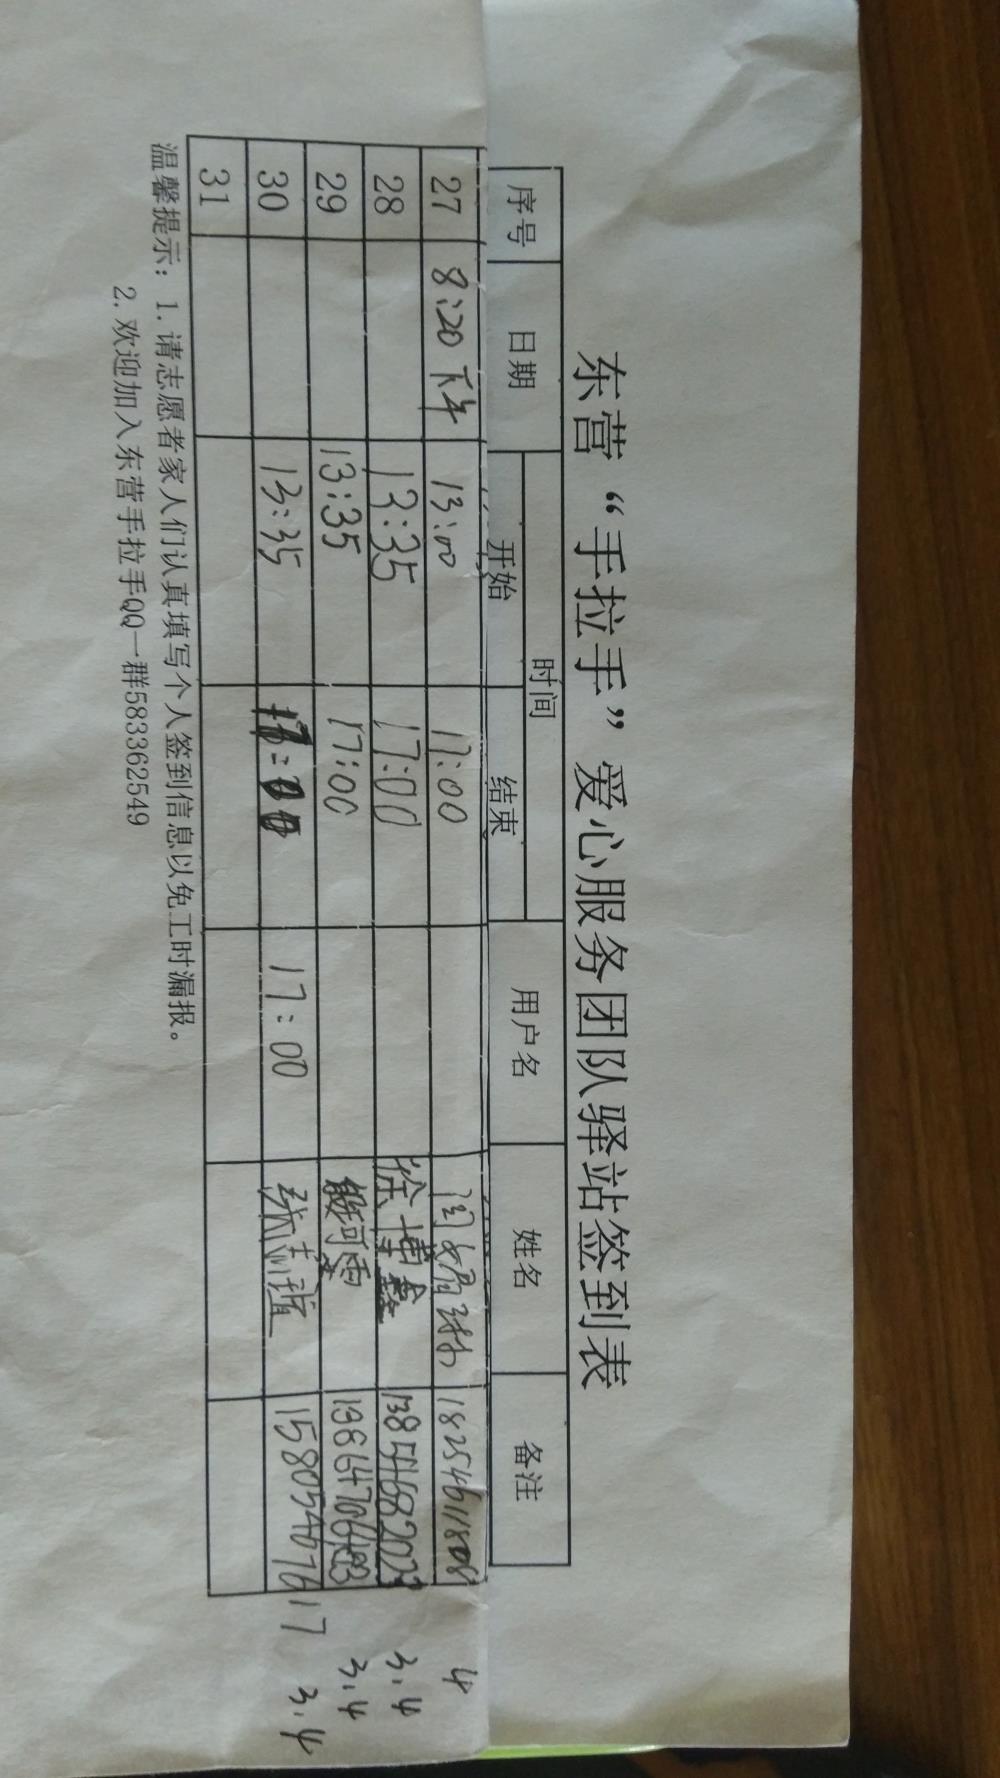 东营“手拉手”爱心服务团队驿站签到表
序号 日期 时间 用户名 姓名 备注
开始 结束
27 8:20 下午 13:00 17:00 18254611808 4
28 13:35 17:00 徐博鑫 13854682023 3.4
29 13:35 17:00 殷可雯 3.4
30 13:35 17:00 张志瑄 15805467617 3.4
31
温馨提示：1.请志愿者家人们认真填写个人签到信息以免工时漏报。
2.欢迎加入东营手拉手QQ一群583362549